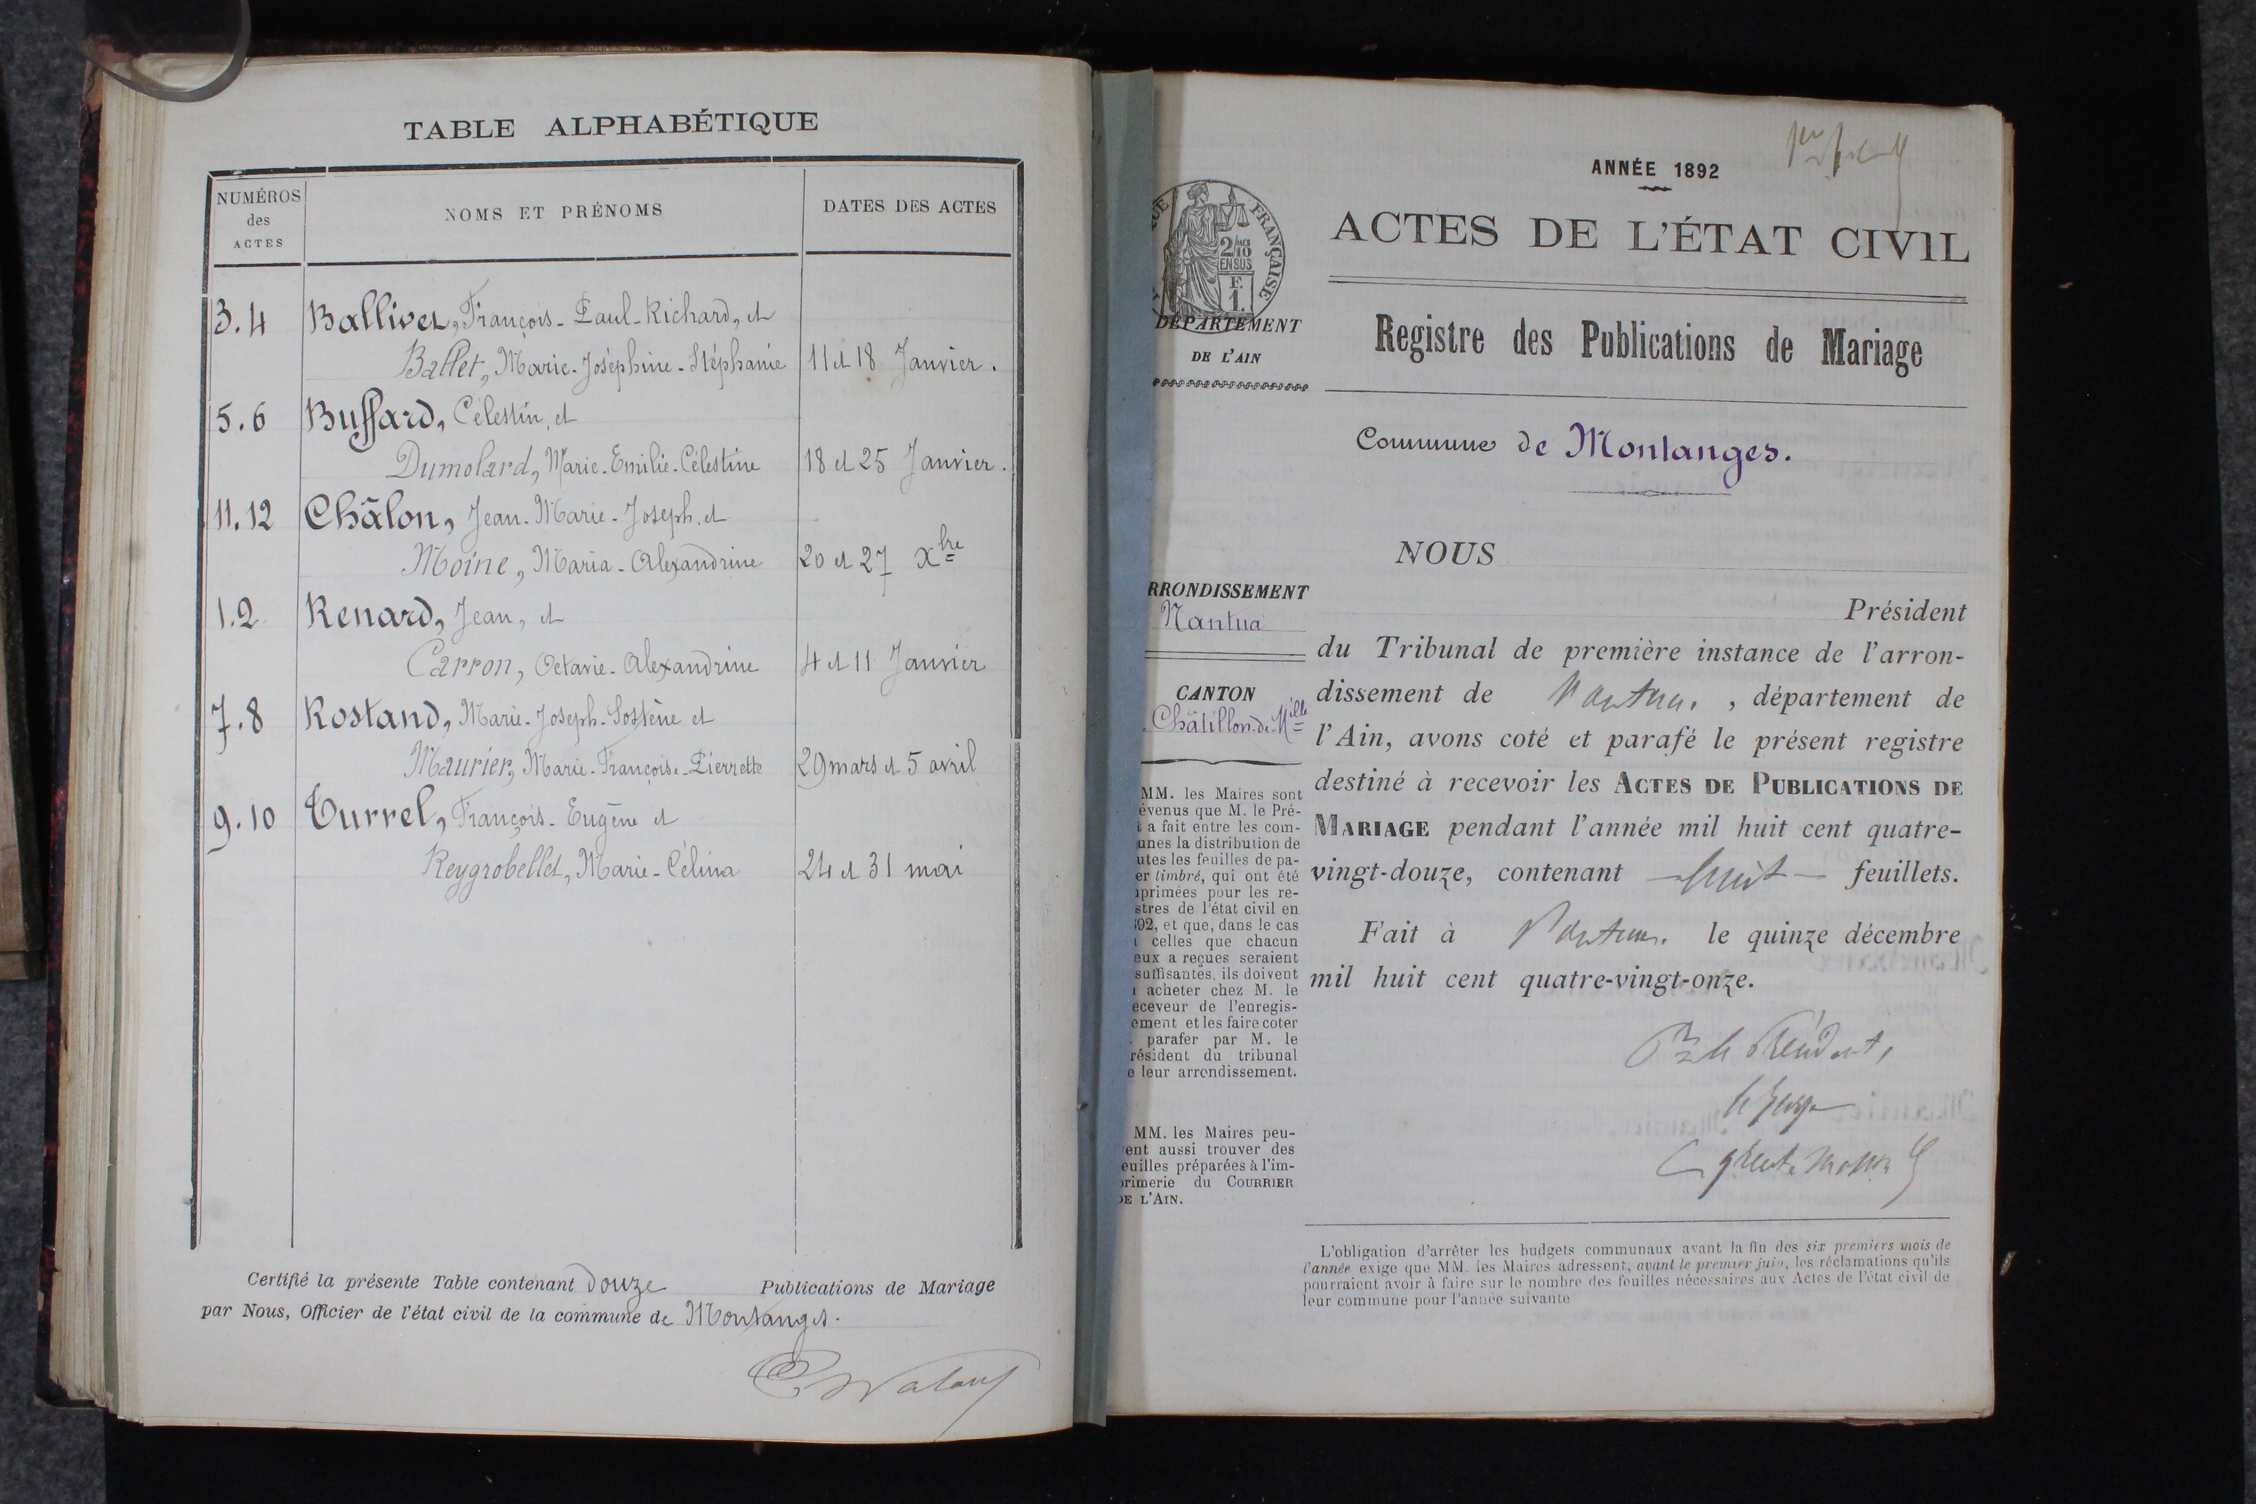 TABLE ALPHABÉTIQUE
NUMÉROS
des
ACTES
NOMS ET PRÉNOMS
DATES DES ACTES
3.4 Ballivet, François-Paul-Richard, et
Ballet, Marie-Joséphine-Stéphanie 11 et 18 Janvier.
5.6 Buffard, Célestin, et
Dumolard, Marie-Emilie-Célestine 18 et 25 Janvier.
11.12 Châlon, Jean-Marie-Joseph, et
Moine, Maria-Alexandrine 20 et 27 Xbre
1.2 Renard, Jean, et
Carron, Octavie-Alexandrine 4 et 11 Janvier
7.8 Rostand, Marie-Joseph-Sostène et
Maurier, Marie-Françoise-Pierrette 29 mars et 5 avril
9.10 Turrel, François-Eugène et
Reygrobellet, Marie-Célina 24 et 31 mai
Certifié la présente Table contenant douze Publications de Mariage
par Nous, Officier de l'état civil de la commune de Montanges.
ANNÉE 1892
FRANÇAISE
2/10
EN SUS
F.
1.
ACTES DE L'ÉTAT CIVIL
DÉPARTEMENT
DE L'AIN
Registre des Publications de Mariage
Commune de Montanges.
RRONDISSEMENT
Nantua
CANTON
Châtillon-de-Mille
MM. les Maires sont
évenus que M. le Pré-
t a fait entre les com-
unes la distribution de
utes les feuilles de pa-
er timbré, qui ont été
primées pour les re-
stres de l'état civil en
92, et que, dans le cas
celles que chacun
eux a reçues seraient
suffisantes, ils doivent
acheter chez M. le
eceveur de l'enregis-
ement et les faire coter
parafer par M. le
résident du tribunal
e leur arrondissement.
MM. les Maires peu-
ent aussi trouver des
euilles préparées à l'im-
primerie du COURRIER
DE L'AIN.
NOUS
Président
du Tribunal de première instance de l'arron-
dissement de Nantua, département de
l'Ain, avons coté et parafé le présent registre
destiné à recevoir les ACTES DE PUBLICATIONS DE
MARIAGE pendant l'année mil huit cent quatre-
vingt-douze, contenant huit feuillets.
Fait à Nantua. le quinze décembre
mil huit cent quatre-vingt-onze.
Pr le Président,
le Juge
L'obligation d'arrêter les budgets communaux avant la fin des six premiers mois de
l'année exige que MM. les Maires adressent, avant le premier juin, les réclamations qu'ils
pourraient avoir à faire sur le nombre des feuilles nécessaires aux Actes de l'état civil de
leur commune pour l'année suivante